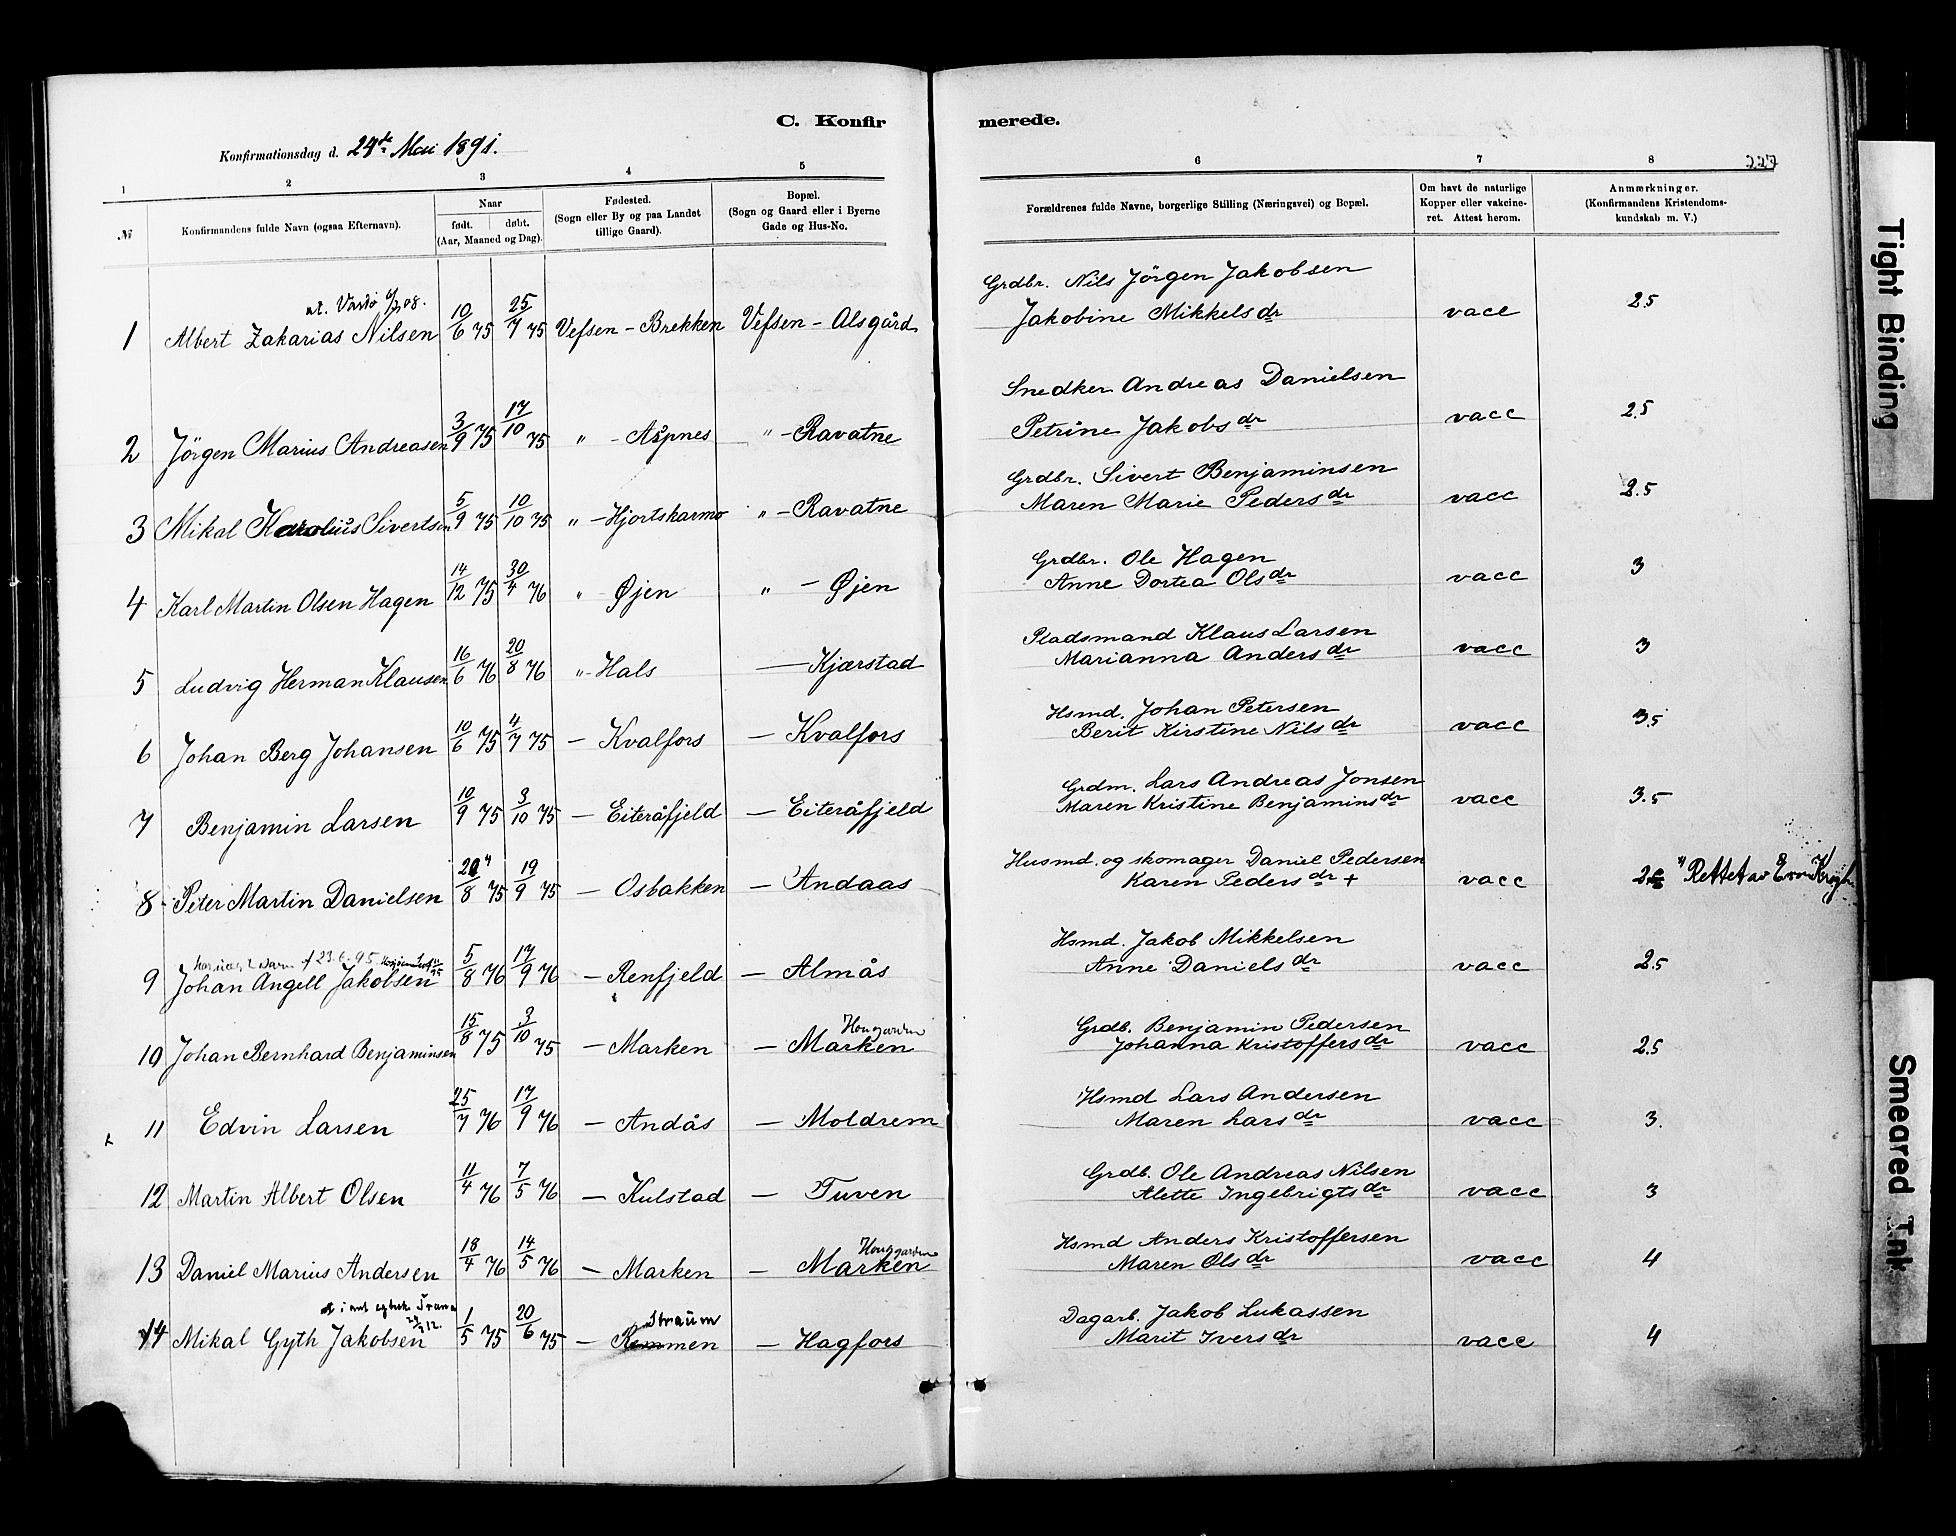 C. Konfirmerede.
Konfirmationsdag d. 24de Mai 1891.
227
1 2 3 4 5 6 7 8
№ Konfirmandens fulde Navn (ogsaa Efternavn). Naar født. døbt. (Aar, Maaned og Dag). Fødested. (Sogn eller By og paa Landet tillige Gaard). Bopæl. (Sogn og Gaard eller i Byerne Gade og Hus-No. Forældrenes fulde Navne, borgerlige Stilling (Næringsvei) og Bopæl. Om havt de naturlige Kopper eller vakcineret. Attest herom. Anmærkninger. (Konfirmandens Kristendomskundskab m. V.)
at. Vardø 6/2 08.
1 Albert Zakarias Nilsen 10/6 75 25/7 75 Vefsen - Brekken Vefsen - Alsgård Grdbr. Nils Jörgen Jakobsen
Jakobine Mikkelsdr vacc 2.5
2 Jörgen Marius Andreasen 3/9 75 17/10 75 " - Aspnes " - Ravatne Snedker Andreas Danielsen
Petrine Jakobsdr vacc 2.5
3 Mikal Karolius Sivertsen 5/9 75 10/10 75 " - Hjortskarmo " - Ravatne Grdbr. Sivert Benjaminsen
Maren Marie Pedersdr vacc 2.5
4 Karl Martin Olsen Hagen 14/12 75 30/4 76 " Øjen " - Øjen Grdbr. Ole Hagen
Anne Dortea Olsdr vacc 3
5 Ludvig Herman Klausen 16/6 76 20/8 76 " - Hals - Kjærstad Pladsmand Klaus Larsen
Marianna Andersdr vacc 3
6 Johan Berg Johansen 10/6 75 4/7 75 - Kvalfors - Kvalfors Hsmd. Johan Petersen
Berit Kirstine Nilsdr vacc 3.5
7 Benjamin Larsen 10/9 75 3/10 75 - Eiteråfjeld - Eiteråfjeld Grdm. Lars Andreas Jonsen
Maren Kristine Benjaminsdr vacc 3.5
8 Peter Martin Danielsen 20/8 75 19/9 75 - Osbakken - Andaas Husmd. og skomager Daniel Pedersen
Karen Pedersdr + vacc 2 Rettet av
23.6.95
9 Johan Angell Jakobsen 5/8 76 17/9 76 - Renfjeld - Almås Hsmd. Jakob Mikkelsen
Anne Danielsdr vacc 2.5
10 Johan Bernhard Benjaminsen 15/8 75 3/10 75 - Marken - Marken Grdb. Benjamin Pedersen
Johanna Kristoffersdr vacc 2.5
11 Edvin Larsen 25/7 76 17/9 76 - Andås - Moldrem Hsmd Lars Andersen
Maren Larsdr vacc 3.
12 Martin Albert Olsen 11/4 76 7/5 76 - Kulstad - Tuven Grdb. Ole Andreas Nilsen
Alette Ingebrigtsdr vacc 3
13 Daniel Marius Andersen 18/4 76 14/5 76 - Marken - Marken Hsmd Anders Kristoffersen
Maren Olsdr vacc 4
14 Mikal Gyth Jakobsen 1/5 75 20/6 75 - Straum Remmen - Hagfors Dagarb. Jakob Lukassen
Marit Iversdr vacc 4
Tight Binding
Smeared Ink